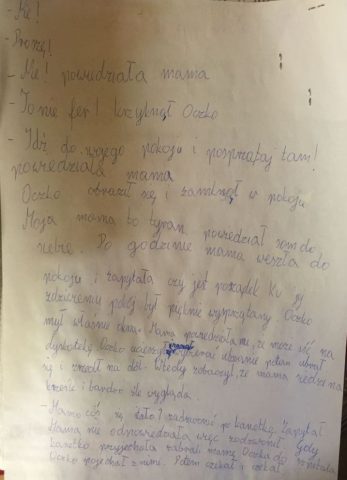 - Nie!
- Proszę!
- Nie! powiedziała mama
- To nie fer! krzyknął Oczko
- Idź do swojego pokoju i posprzątaj tam!
powiedziała mama
Oczko obraził się i zamknął w pokoju
Moja mama to tyran powiedział sam do
siebie. Po godzinie mama weszła do
pokoju i zapytała czy jest porządek Ku jej
zdziwieniu pokój był pięknie wysprzątany Oczko
mył właśnie okna. Mama powiedziała mu, że może iść na
dyskotekę Oczko ucieszył ubranie potem ubrał
się i zszedł na dół. Wtedy zobaczył, że mama siedzi na
krześle i bardzo źle wygląda.
- Mamo coś się stało? zadzwonić po karetkę? Zapytał
Mama nie odpowiedziała więc zadzwonił. Gdy
karetka przyjechała zabrali mamę Oczka do szpitala
Oczko pojechał z nimi. Potem czekał i czekał